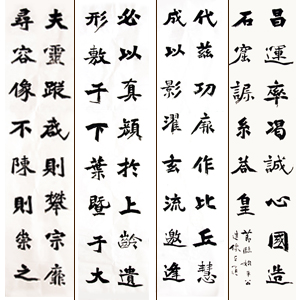 夫靈蹤啟則攀宗靡
尋容像不陳則崇之
必以真顏於上齡遺
形敷于下葉暨于大
代茲功厥作比丘慧
成以影濯玄流邀逢
昌運率竭誠心國造
石窟系答皇